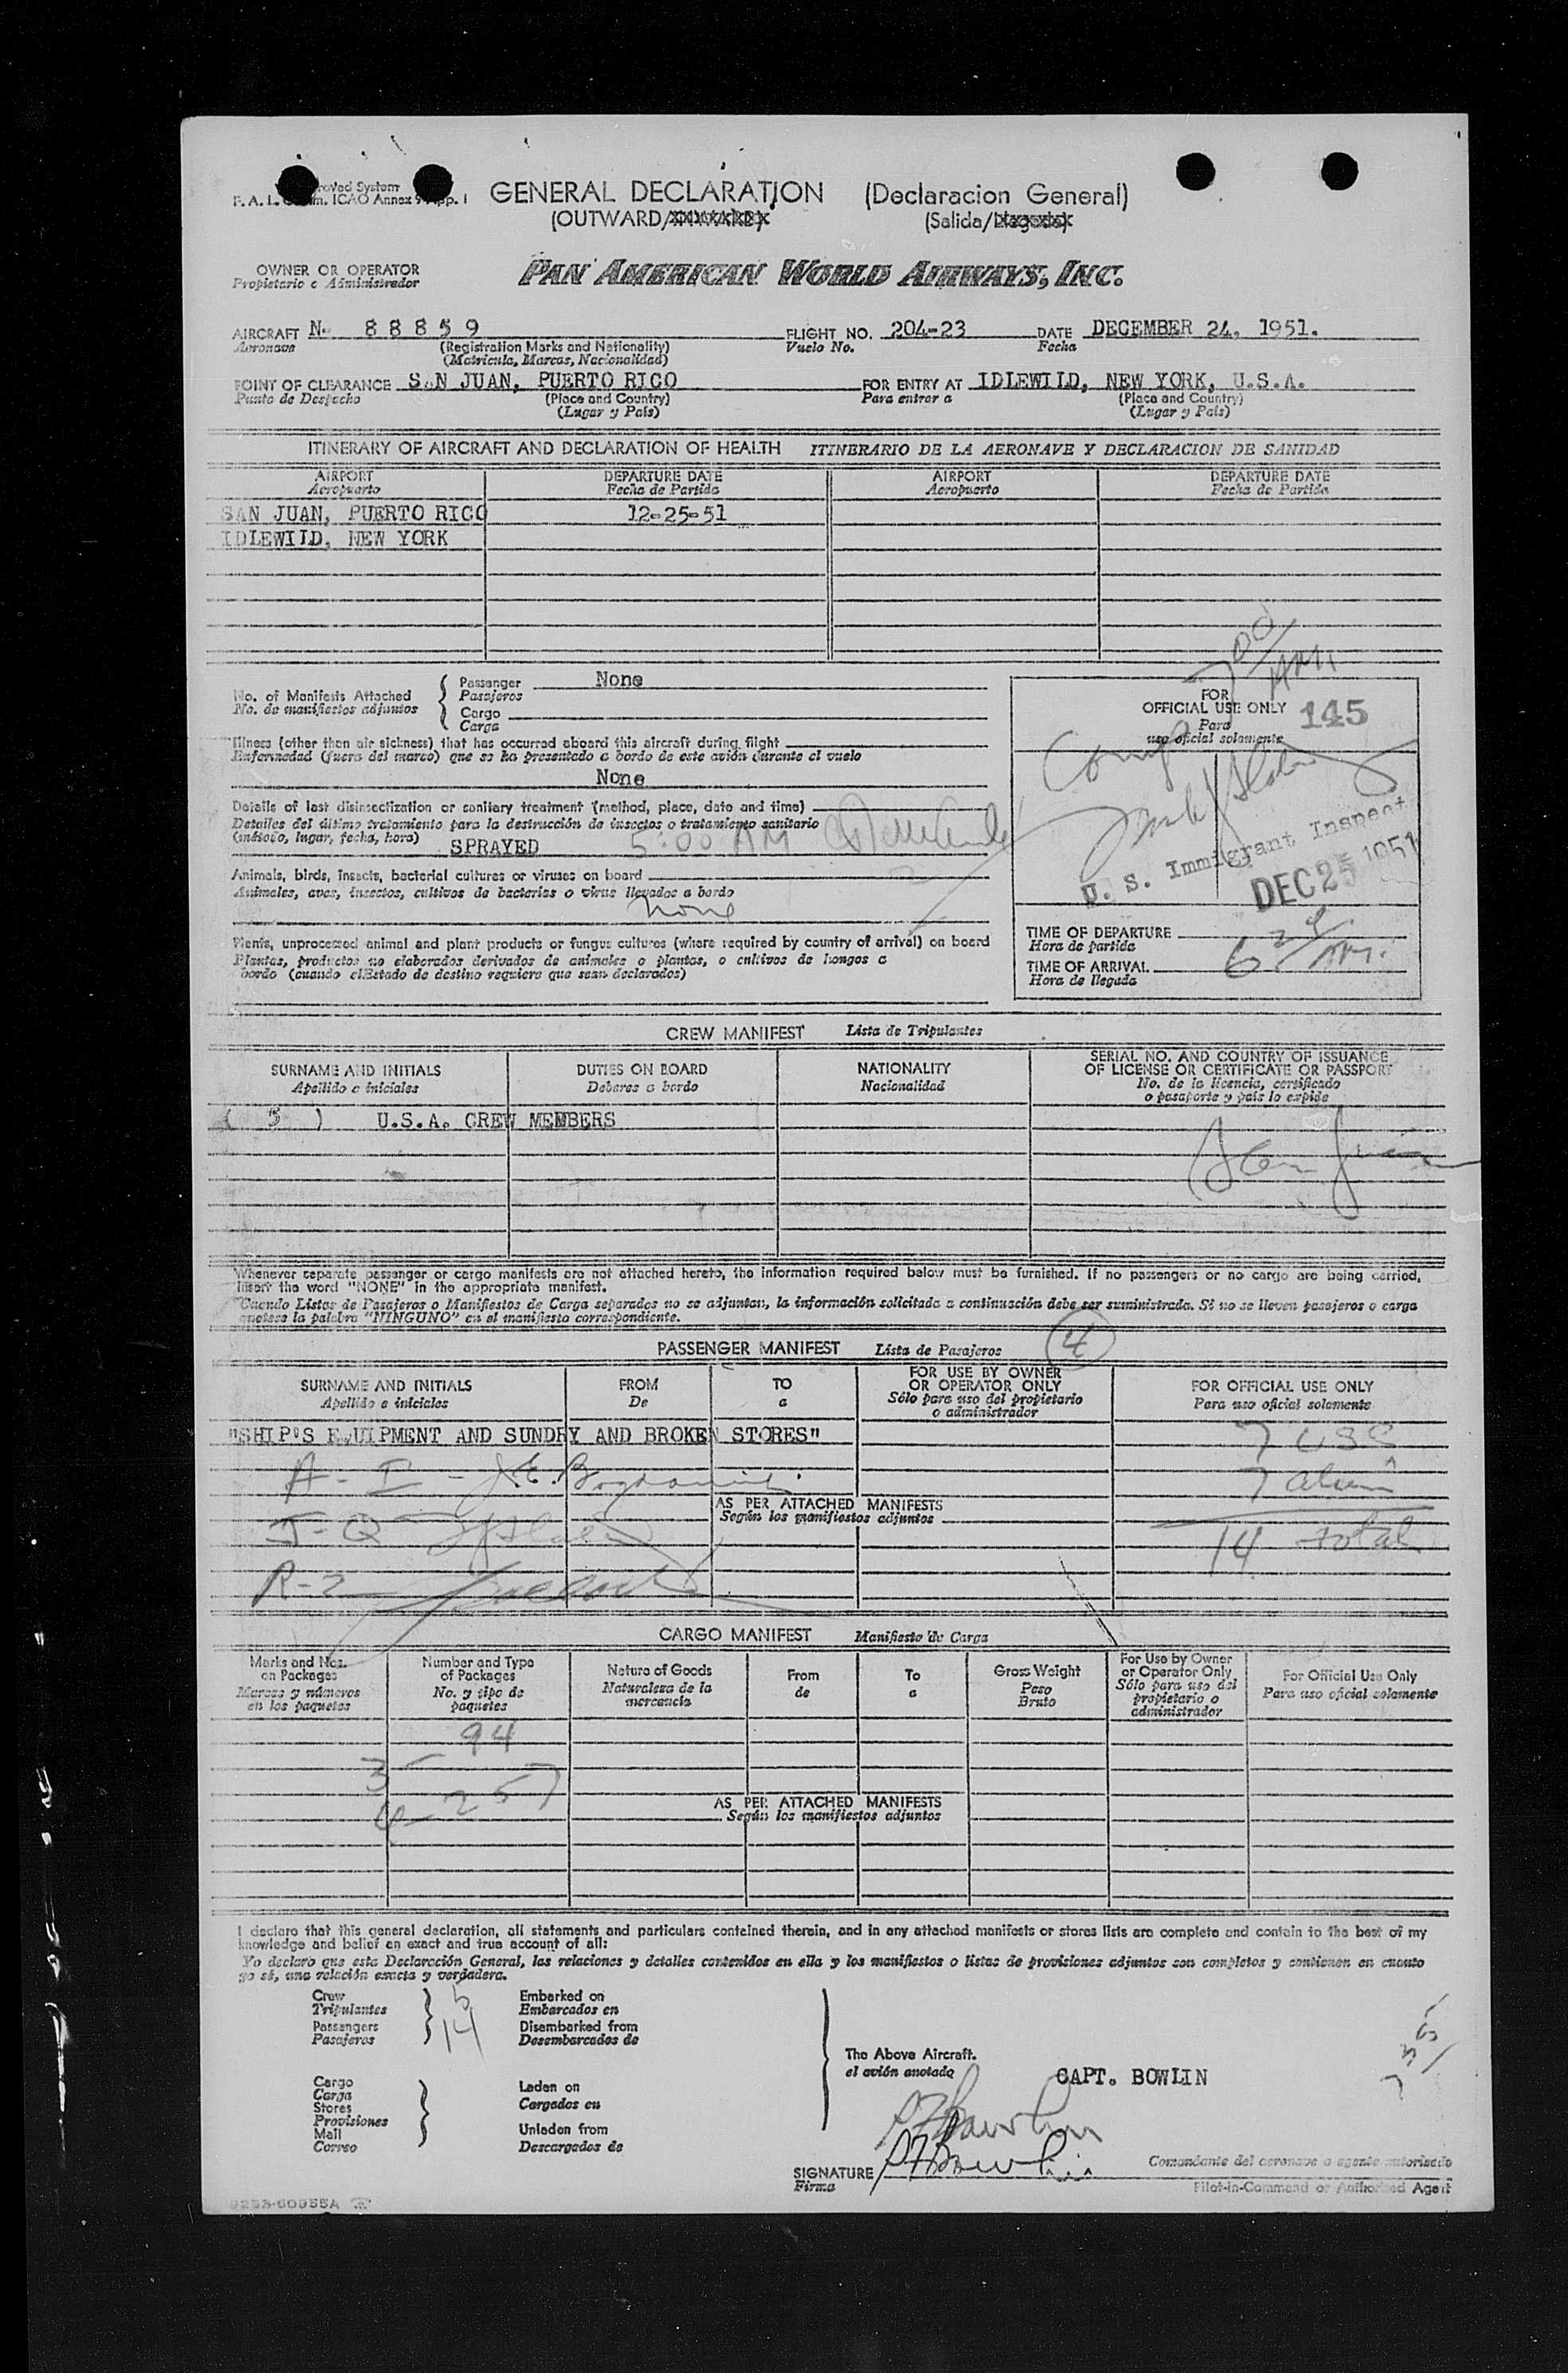 GENERAL DECLARATION (Declaracion General)
F. A. L. ICAO Annex 9 App. 1
(OUTWARD/ (Salida/
OWNER OR OPERATOR
Propietario o Administrador
PAN AMERICAN WORLD AIRWAYS, INC.
AIRCRAFT N. 88859 FLIGHT NO. 204-23 DATE DECEMBER 24, 1951.
Aeronave (Registration Marks and Nationality) Vuelo No. Fecha
(Matricula, Marcas, Nacionalidad)
POINT OF CLEARANCE SAN JUAN, PUERTO RICO FOR ENTRY AT IDLEWILD, NEW YORK, U.S.A.
Punto de Despacho (Place and Country) Para entrar a (Place and Country)
(Lugar y País) (Lugar y País)
ITINERARY OF AIRCRAFT AND DECLARATION OF HEALTH ITINERARIO DE LA AERONAVE Y DECLARACION DE SANIDAD
AIRPORT DEPARTURE DATE AIRPORT DEPARTURE DATE
Aeropuerto Fecha de Partida Aeropuerto Fecha de Partida
SAN JUAN, PUERTO RICO 12-25-51
IDLEWILD, NEW YORK
700
AM
No. of Manifests Attached
No. de manifiestos adjuntos
Passenger None
Pasajeros
Cargo
Carga
FOR
OFFICIAL USE ONLY 145
Para
uso oficial solamente
Illness (other than air sickness) that has occurred aboard this aircraft during flight
Enfermedad (fuera del mareo) que se ha presentado a bordo de este avión durante el vuelo
None
Details of last disinsectization or sanitary treatment (method, place, date and time)
Detalles del último tratamiento para la destrucción de insectos o tratamiento sanitario
(método, lugar, fecha, hora) SPRAYED 5:00 AM
U. S. Immigrant Inspect
DEC 25 1951
Animals, birds, insects, bacterial cultures or viruses on board
Animales, aves, insectos, cultivos de bacterias o virus llevados a bordo
none
Plants, unprocessed animal and plant products or fungus cultures (where required by country of arrival) on board
Plantas, productos no elaborados derivados de animales o plantas, o cultivos de hongos a
bordo (cuando elEstado de destino requiere que sean declarados)
TIME OF DEPARTURE
Hora de partida
TIME OF ARRIVAL
Hora de llegada
CREW MANIFEST Lista de Tripulantes
SURNAME AND INITIALS DUTIES ON BOARD NATIONALITY SERIAL NO. AND COUNTRY OF ISSUANCE
OF LICENSE OR CERTIFICATE OR PASSPORT
Apellido e iniciales Deberes a bordo Nacionalidad No. de la licencia, certificado
o pasaporte y país lo expide
( 5 ) U.S.A. CREW MEMBERS
Whenever separate passenger or cargo manifests are not attached hereto, the information required below must be furnished. If no passengers or no cargo are being carried,
insert the word "NONE" in the appropriate manifest.
Cuando Listas de Pasajeros o Manifiestos de Carga separados no se adjuntan, la información solicitada a continuación debe ser suministrada. Si no se lleven pasajeros o carga
anotese la palabra "NINGUNO" en el manifiesto correspondiente.
PASSENGER MANIFEST Lista de Pasajeros 4
SURNAME AND INITIALS FROM TO FOR USE BY OWNER
OR OPERATOR ONLY FOR OFFICIAL USE ONLY
Apellido e iniciales De a Sólo para uso del propietario
o administrador Para uso oficial solamente
"SHIP'S EQUIPMENT AND SUNDRY AND BROKEN STORES" 7 USC
A - I - 7 alien
AS PER ATTACHED MANIFESTS
Según los manifiestos adjuntos
J-Q 14 total
R-Z
CARGO MANIFEST Manifiesto de Carga
Marks and Nos.
on Packages
Marcas y números
en los paquetes
Number and Type
of Packages
No. y tipo de
paquetes
Nature of Goods
Naturaleza de la
mercancía
From
de
To
a
Gross Weight
Peso
Bruto
For Use by Owner
or Operator Only
Sólo para uso del
propietario o
administrador
For Official Use Only
Para uso oficial solamente
94
AS PER ATTACHED MANIFESTS
Según los manifiestos adjuntos
I declare that this general declaration, all statements and particulars contained therein, and in any attached manifests or stores lists are complete and contain to the best of my
knowledge and belief an exact and true account of all:
Yo declaro que esta Declaración General, las relaciones y detalles contenidos en ella y los manifiestos o listas de provisiones adjuntos son completos y contienen en cuanto
yo sé, una relación exacta y verdadera.
Crew 5 Embarked on
Tripulantes Embarcados en
Passengers 14 Disembarked from
Pasajeros Desembarcados de
The Above Aircraft.
el avión anotado
CAPT. BOWLIN
Cargo
Carga
Stores
Provisiones
Mail
Correo
Laden on
Cargados en
Unladen from
Descargados de
SIGNATURE
Firma
Comandante del aeronave o agente autorizado
Pilot-in-Command or Authorized Agent